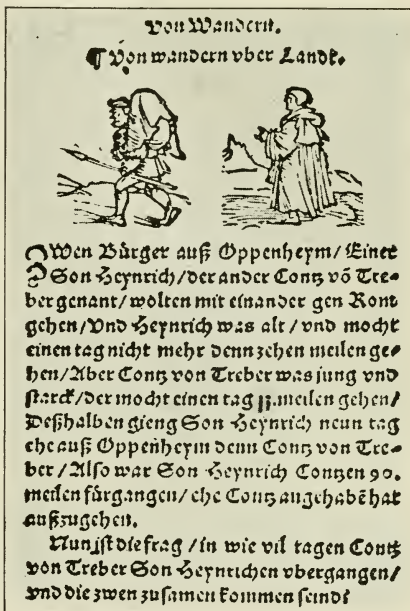 Von Wandern.
¶ Von wandern vber Landt.
ZWen Bürger auß Oppenheym/ Einer
Son Heynrich/der ander Contz võ Tre-
ber genant/ wolten mit einander gen Rom
gehen/ Vnd Heynrich was alt / vnd mocht
einen tag nicht mehr denn zehen meilen ge-
hen/Aber Contz von Treber was jung vnd
starck/der mocht einen tag meilen gehen/
Deßhalben gieng Son Heynrich neun tag
ehe auß Oppenheym denn Contz von Tre-
ber / Also war Son Heynrich Contzen 90.
meilen fürgangen/ ehe Contz angehabẽ hat
außzugehen.
Nun ist die frag / in wie vil tagen Contz
von Treber Son Heynrichen vbergangen/
vnd die zwen zusamen kommen seind?